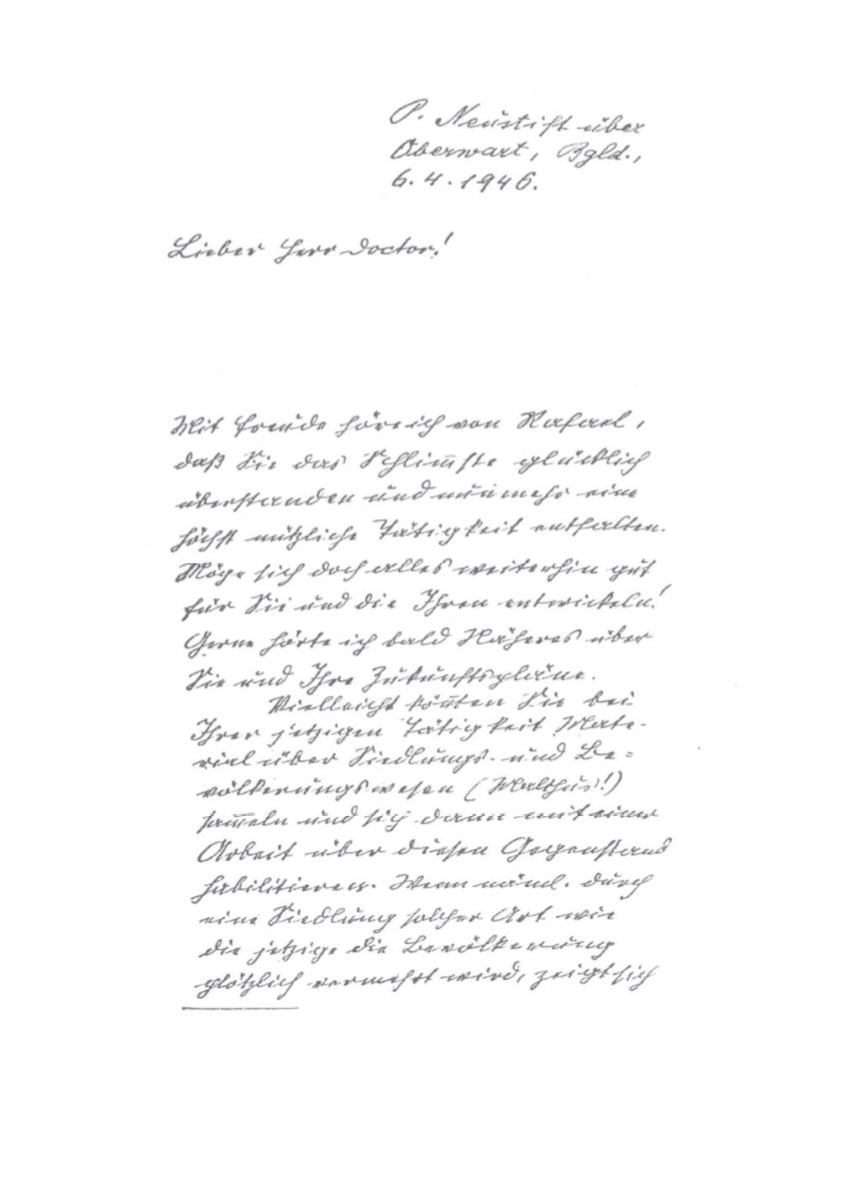 P. Neustift über
Oberwart, Bgld.,
6.4.1946.
Lieber Herr Doctor!
Mit Freude höre ich von Rafael,
daß Sie das Schlimmste glücklich
überstanden und nunmehr eine
höchst nützliche Tätigkeit entfalten.
Möge sich doch alles weiterhin gut
für Sie und die Ihren entwickeln!
Gerne hörte ich bald Näheres über
Sie und Ihre Zukunftspläne.
Vielleicht könnten Sie bei
Ihrer jetzigen Tätigkeit Mate-
rial über Siedlungs- und Be-
völkerungswesen (Malthus!)
sammeln und sich dann mit einer
Arbeit über diesen Gegenstand
habilitieren. Wenn näml. durch
eine Siedlung solcher Art wie
die jetzige die Bevölkerung
plötzlich vermehrt wird, zeigt sich